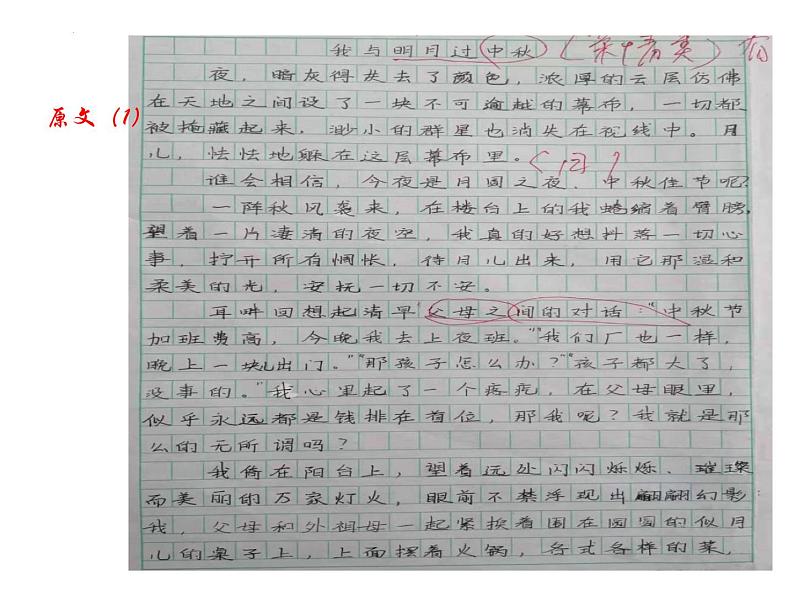 原文（1）
我与明月过中秋
夜，暗灰得失去了颜色，浓厚的云层仿佛
在天地之间设了一块不可逾越的幕布，一切都
被掩藏起来，渺小的群星也消失在视线中。月
儿，怯怯地躲在这层幕布里。
谁会相信，今夜是月圆之夜、中秋佳节呢？
一阵秋风袭来，在楼台上的我蜷缩着臂膀，
望着一片凄清的夜空，我真的好想抖落一切心
事，拧开所有惆怅，待月儿出来，用它那温和
柔美的光，安抚一切不安。
耳畔回想起清早父母之间的对话：“中秋节
加班费高，今晚我去上夜班。”“我们厂也一样，
晚上一块儿出门。”“那孩子怎么办？”“孩子都大了，
没事的。”我心里起了一个疙疙，在父母眼里，
似乎永远都是钱排在首位，那我呢？我就是那
么的无所谓吗？
我倚在阳台上，望着远处闪闪烁烁、璀璨
而美丽的万家灯火，眼前不禁浮现出翩翩幻影
我，父母和外祖母一起紧挨着围在圆圆的似月
儿的桌子上，上面摆着火锅，各式各样的菜，